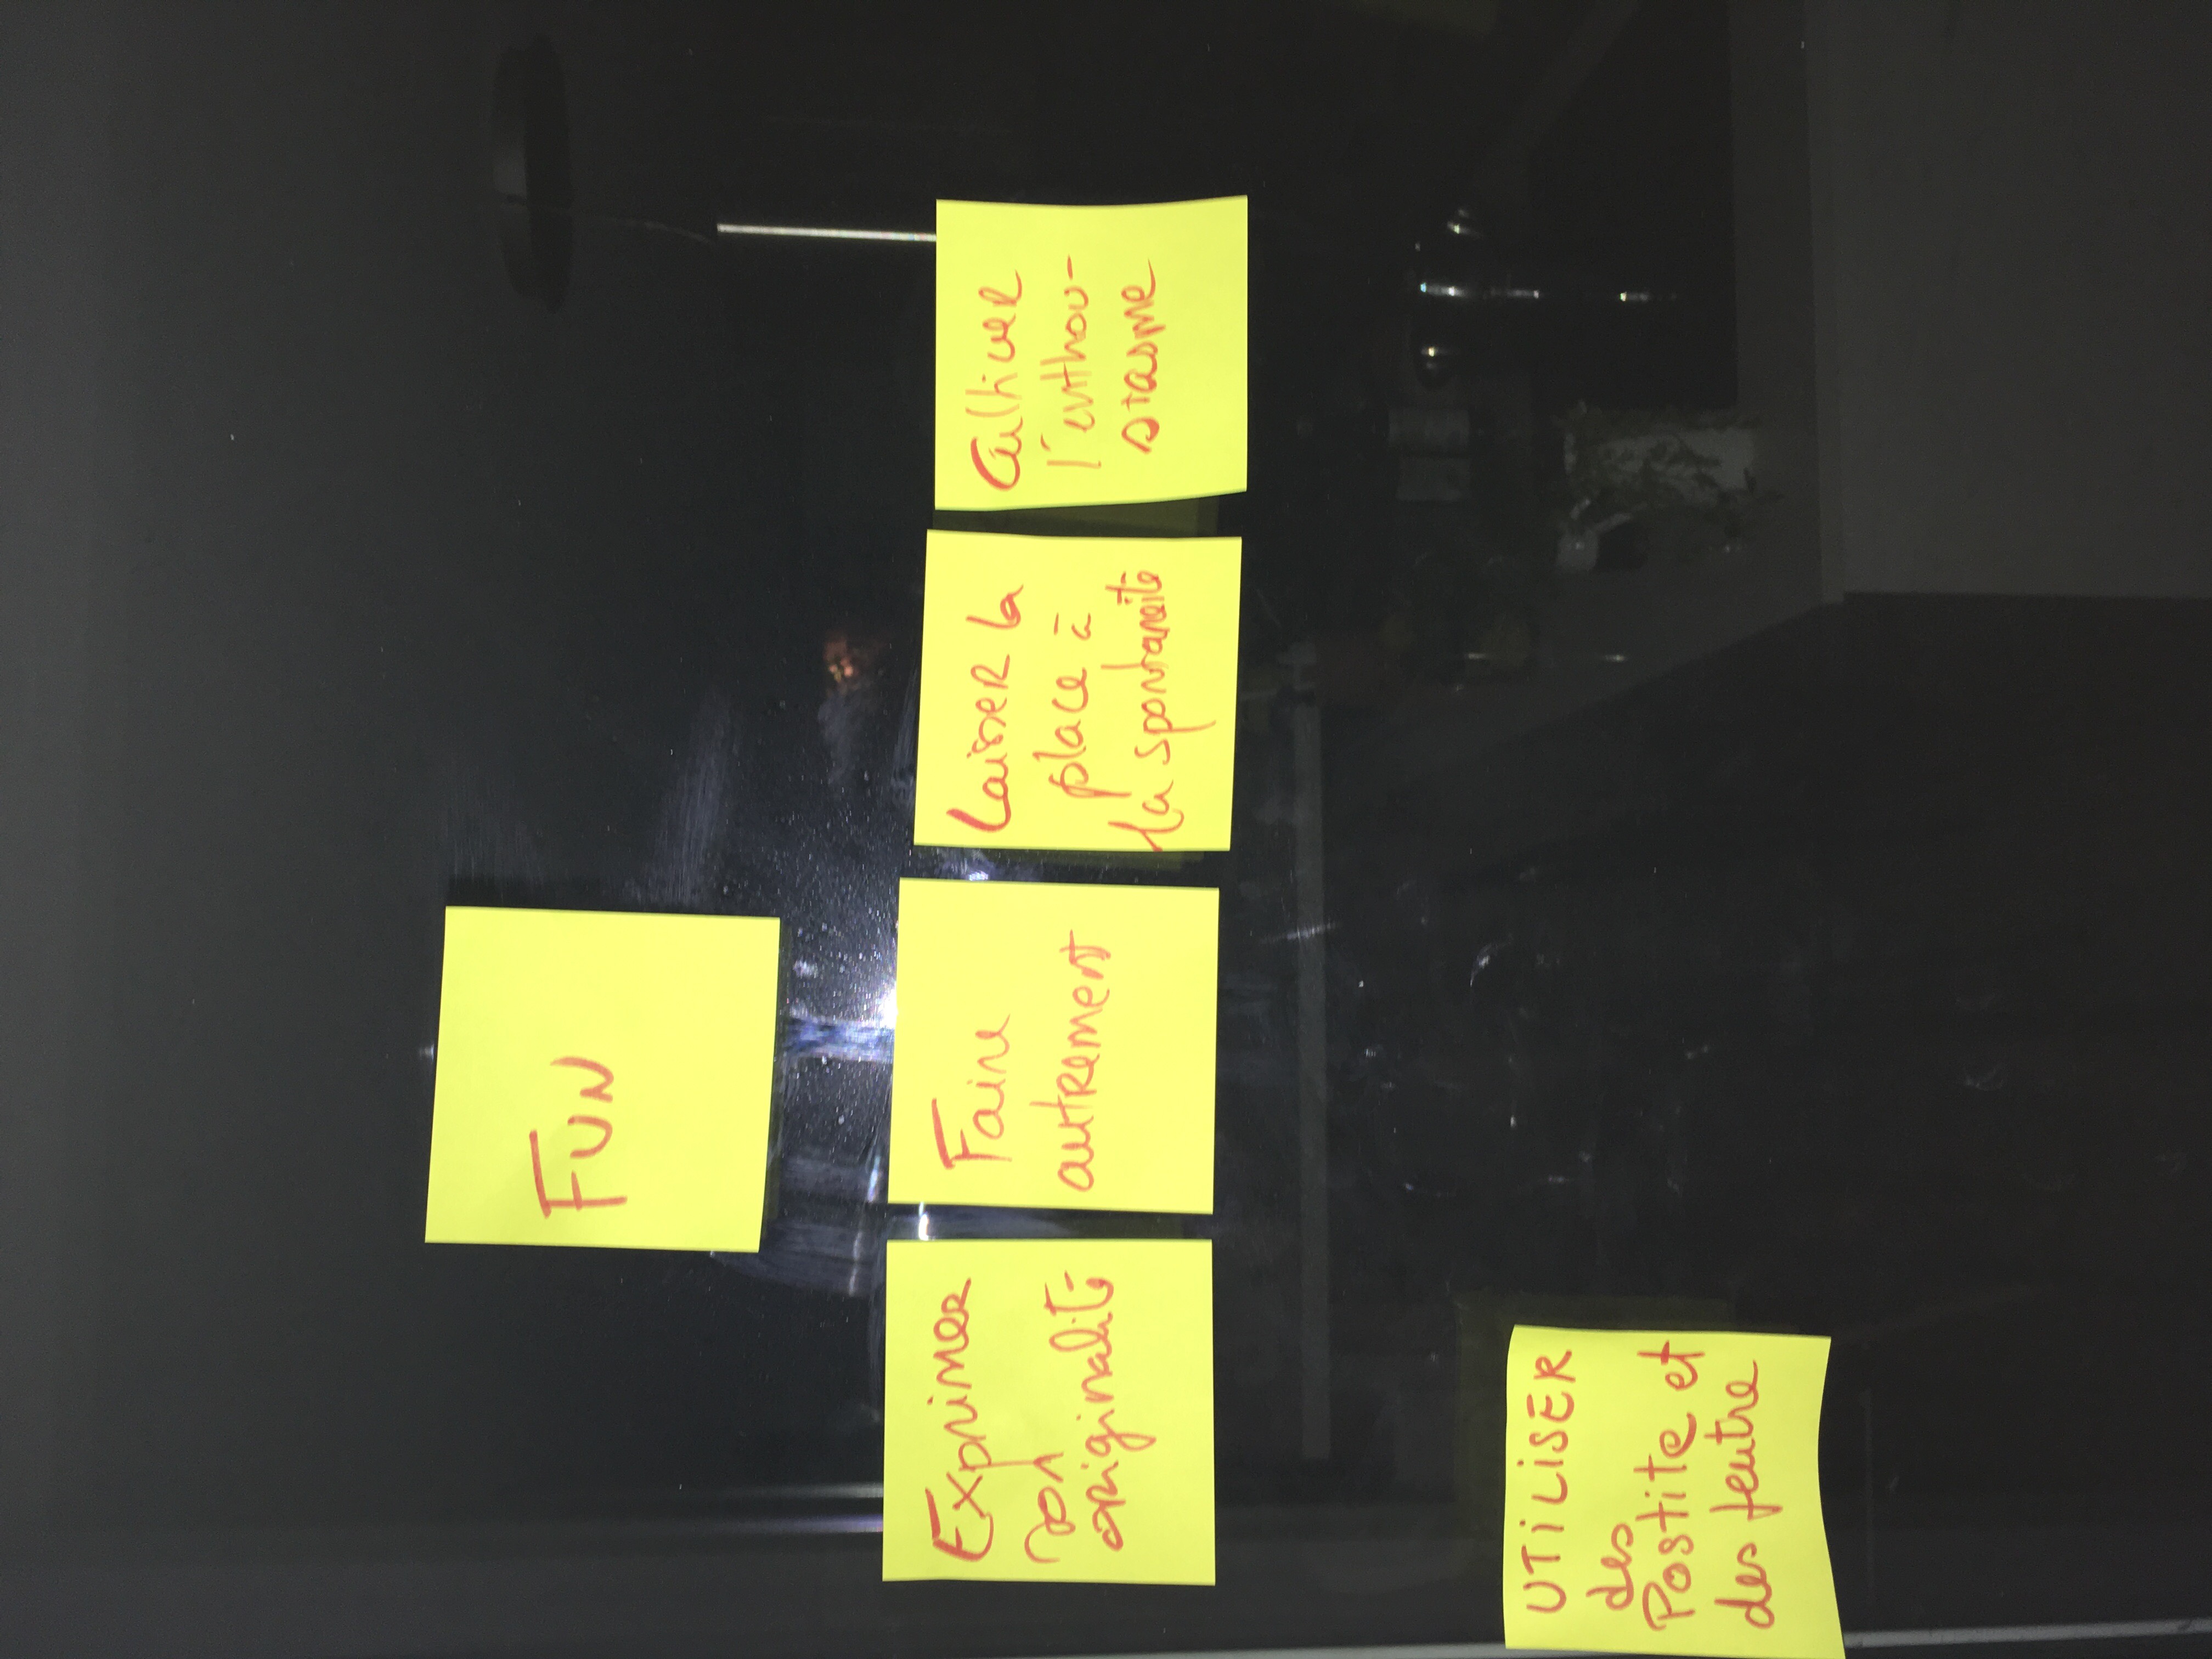 FUN
Exprimer
son
originalité
Faire
autrement
Laisser la
place à
la spontaneité
Cultiver
l'enthou-
siasme
UTILISER
des
Postite et
des feutre